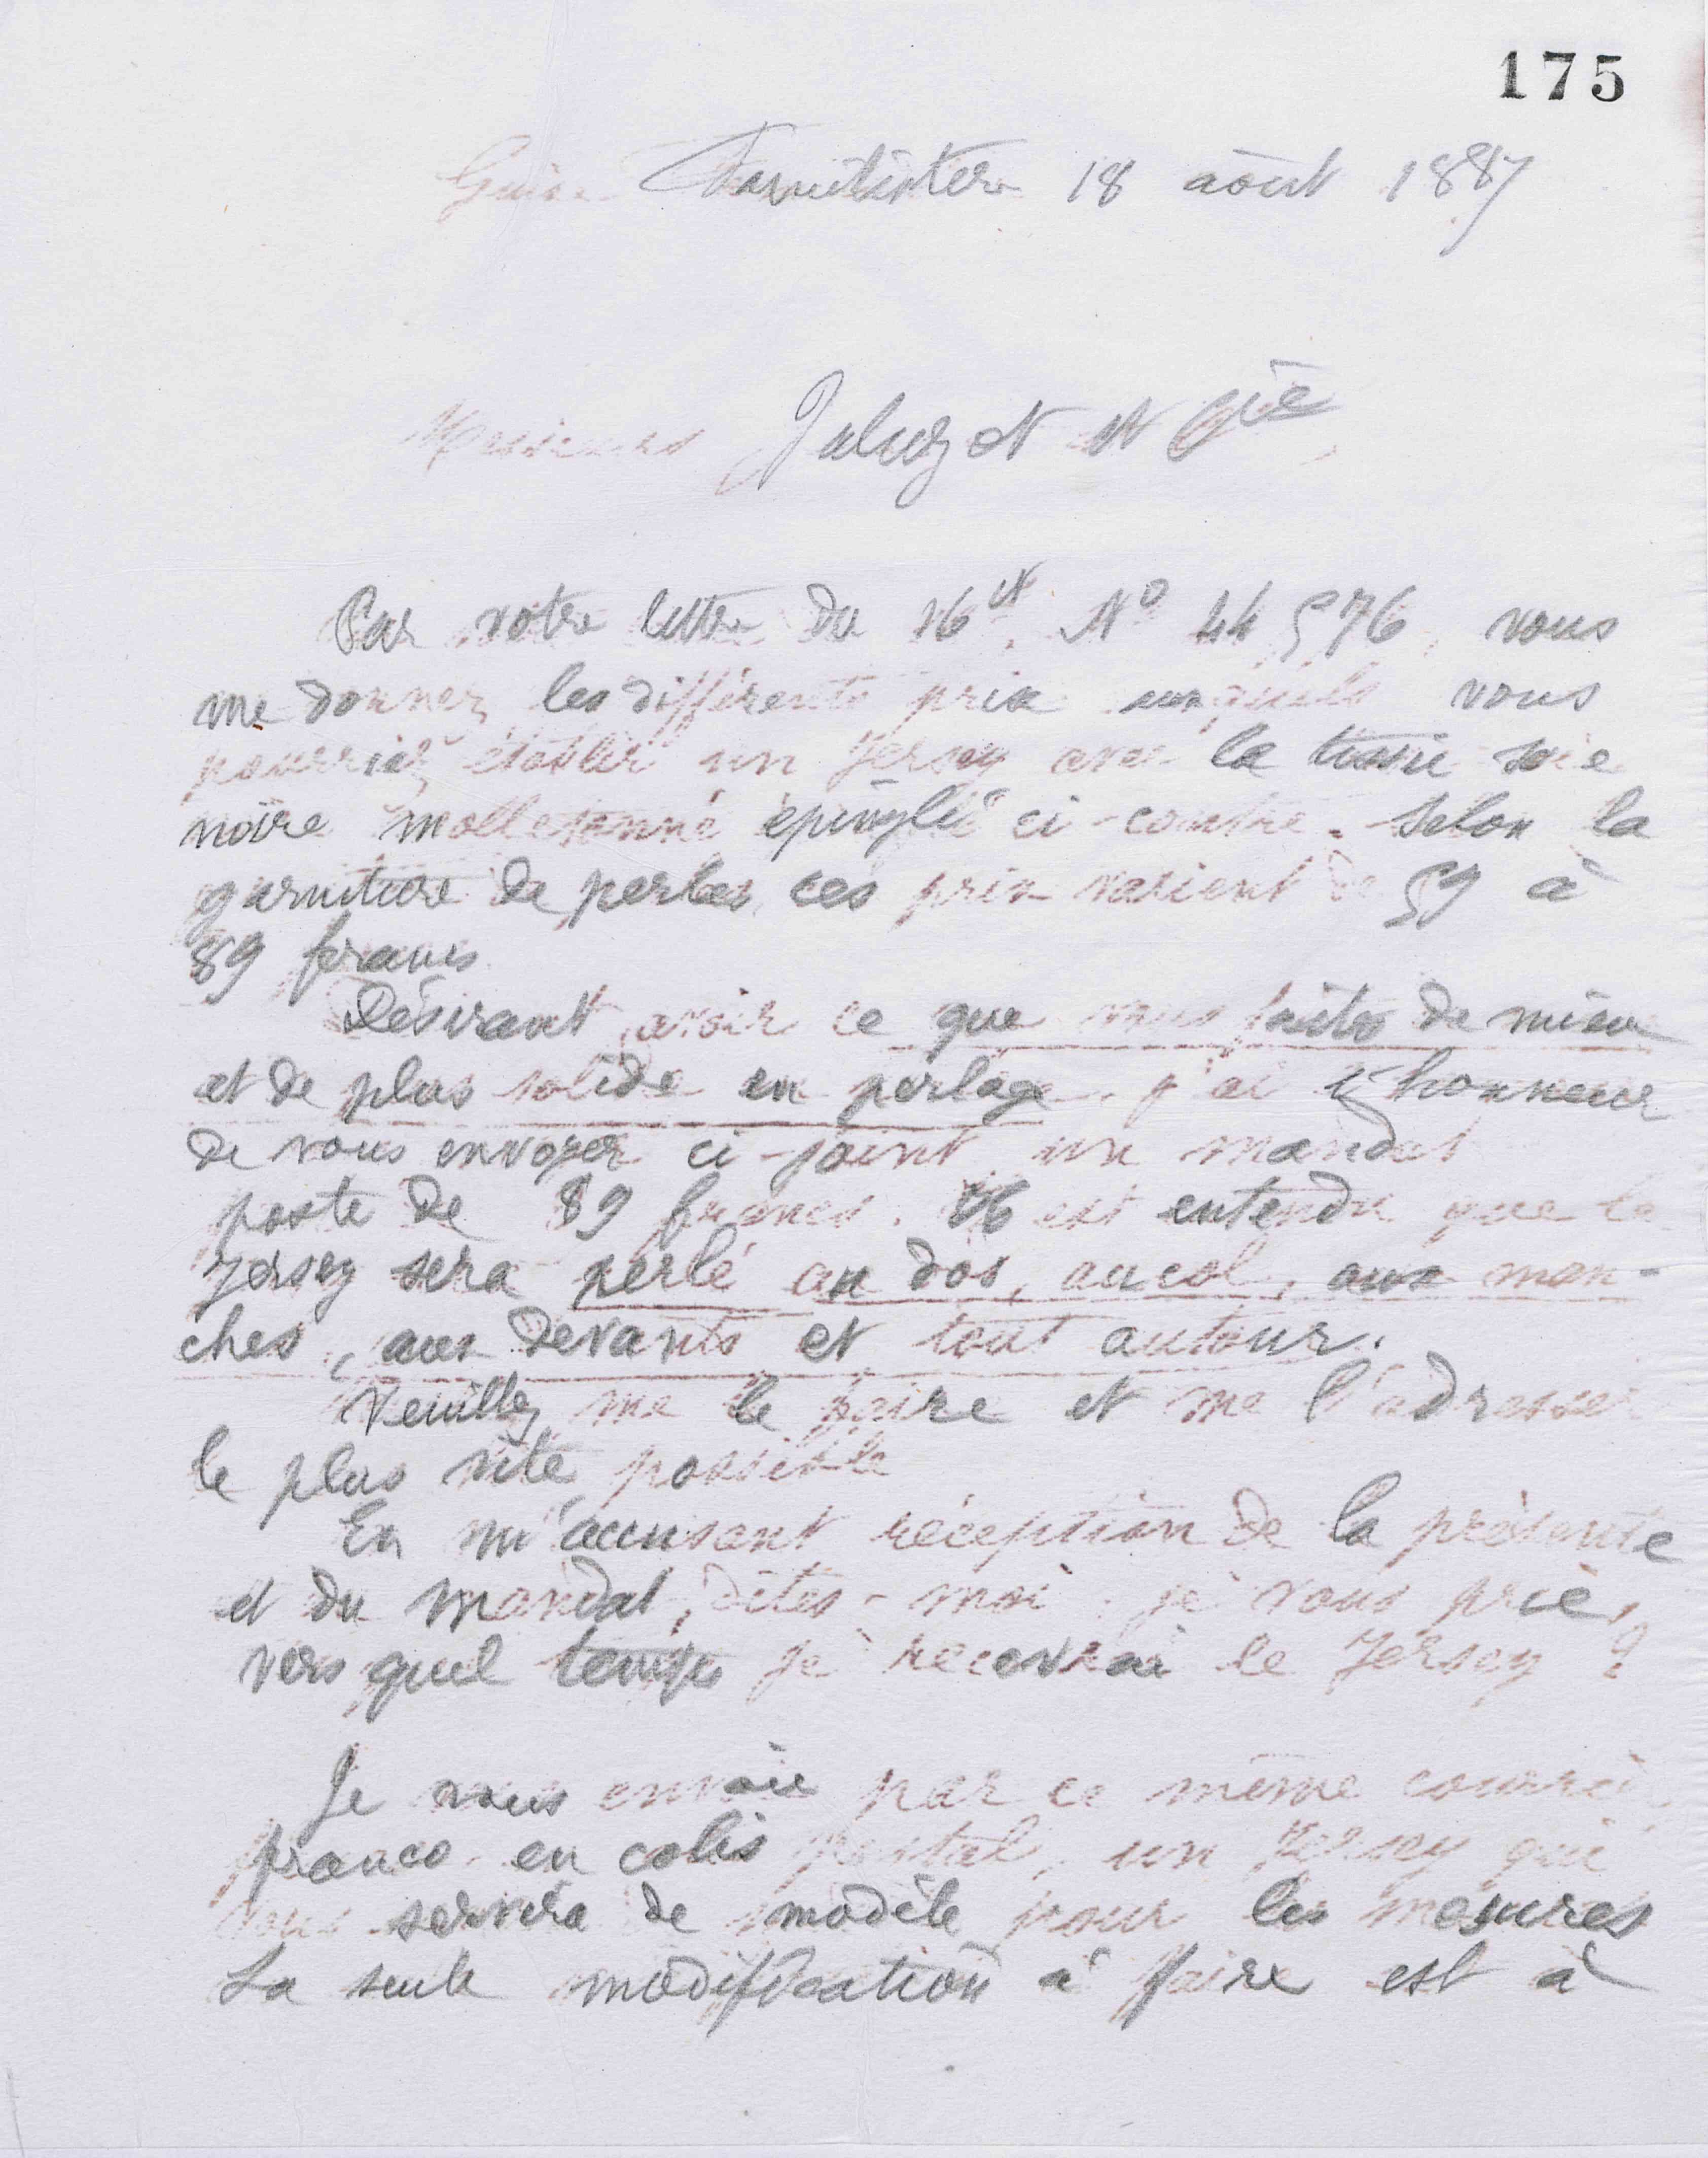 175
Guise Familistère 18 août 1887
Messieurs Jaluzot et Cie,
Par votre lettre du 16 ct. No 44576, vous
me donnez les différents prix auxquels vous
pourriez établir un Jersey avec le tissu soie
noire molletonné épinglé ci-contre. Selon la
garniture de perles, ces prix varient de 59 à
89 francs.
Désirant avoir ce que vous faites de mieux
et de plus solide en perlage, j'ai l'honneur
de vous envoyer ci-joint un mandat
poste de 89 francs. Il est entendu que le
Jersey sera perlé au dos, au col, aux man-
ches, aux devants et tout autour.
Veuillez me le faire et me l'adresser
le plus vite possible
En m'accusant réception de la présente
et du mandat, dites-moi, je vous prie,
vers quel temps je recevrai le Jersey ?
Je vous envoie par ce même courrier,
franco en colis postal, un Jersey qui
vous servira de modèle pour les mesures
La seule modification à faire est à